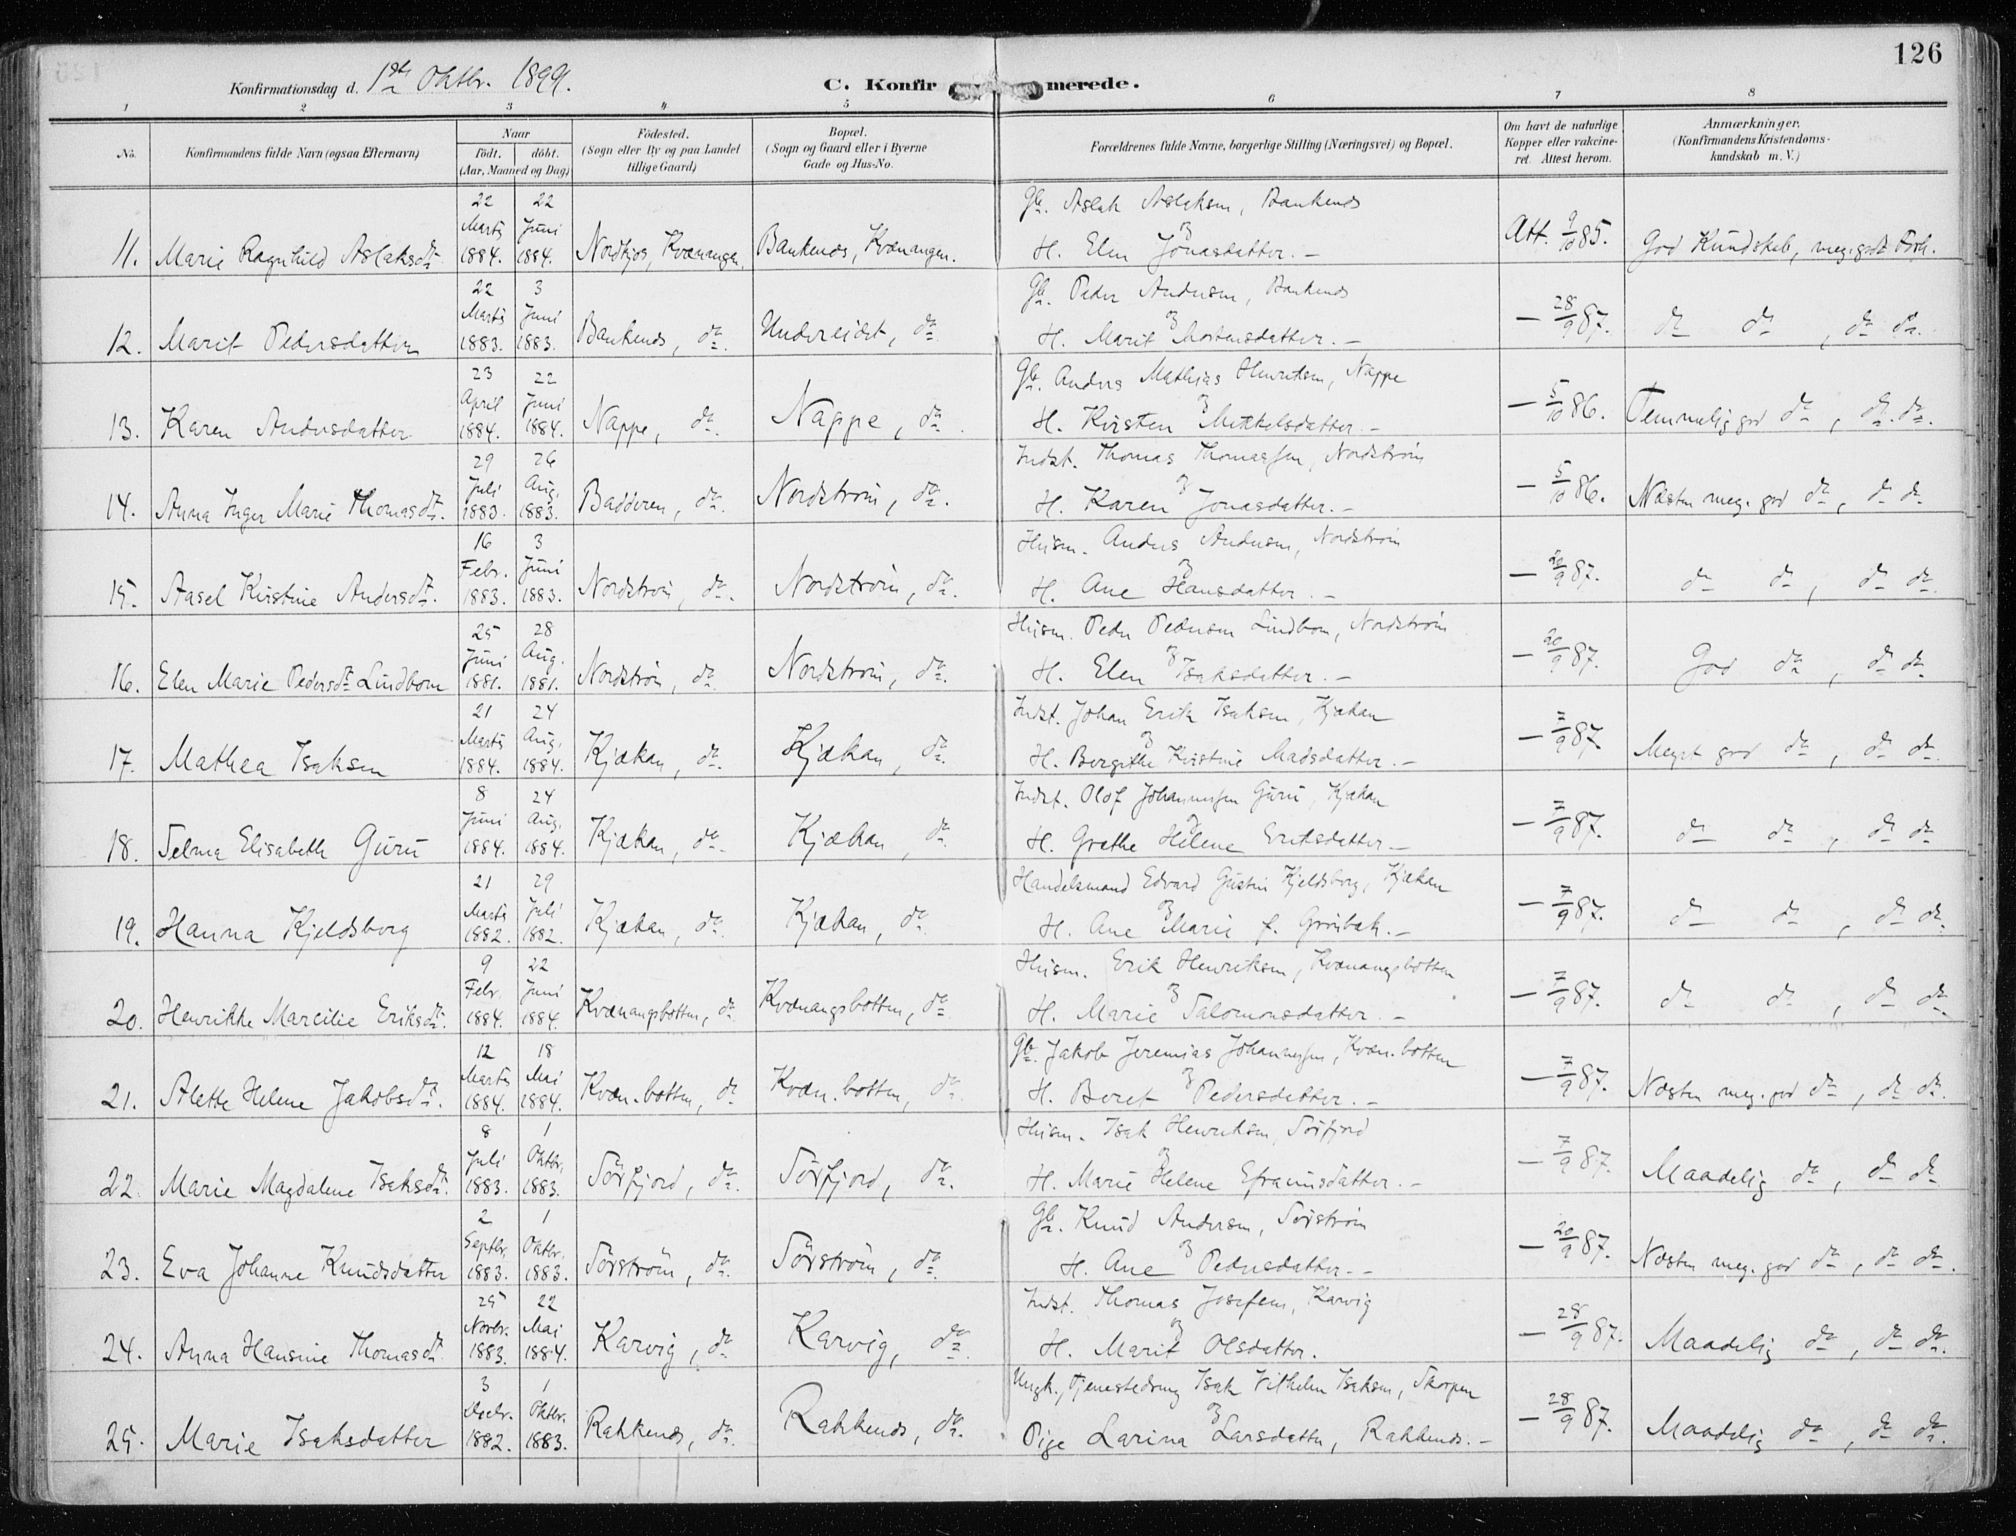 126
Konfirmationsdag d. 1ste Oktbr. 1899.
C. Konfirmerede.
1 2 3 4 5 6 7 8
No.
Konfirmandens fulde Navn (ogsaa Efternavn)
Naar
født. døbt.
(Aar, Maaned og Dag)
Fødested.
(Sogn eller By og paa Landet
tillige Gaard)
Bopæl.
(Sogn og Gaard eller i Byerne
Gade og Hus-No.
Forældrenes fulde Navne, borgerlige Stilling (Næringsvei) og Bopæl.
Om havt de naturlige
Kopper eller vakcine-
ret. Attest herom.
Anmærkninger.
(Konfirmandens Kristendoms-
kundskab m. V.)
11. Marie Ragnhild Aslaksdtr. 22 Marts 1884. 22 Juni 1884. Nordkjos, Kvænangen. Baukends, Kvænangen. Gbr. Aslak Aslaksen, Baukends
og
H. Elen Jonasdatter. – Att. 9/10 85. God Kundskab, meg. godt Forh.
12. Marit Pedersdatter 22 Marts 1883. 3 Juni 1883. Baukends, do. Undereidet, do. Gbr. Peder Andersen, Baukends
og
H. Marit Mortensdatter. – – 28/9 87. do do, do do.
13. Karen Andersdatter 23 April 1884. 22 Juni 1884. Nappe, do. Nappe, do. Gbr. Anders Mathias Henriksen, Nappe
og
H. Kirsten Mikkelsdatter. – – 5/10 86. Temmelig god do, do. do.
14. Anna Inger Marie Thomasdtr. 29 Juli 1883. 26 Aug. 1883. Badderen, do. Nordstrøm, do. Indst. Thomas Thomassen, Nordstrøm
og
H. Karen Jonasdatter. – – 5/10 86. Næsten meg. god do, do do.
15. Aasel Kirstine Andersdtr. 16 Febr. 1883. 3 Juni 1883. Nordstrøm, do. Nordstrøm, do. Husm. Anders Andersen, Nordstrøm
og
H. Ane Hansdatter. – – 20/9 87. do do, do do.
16. Elen Marie Pedersdtr Lindbom 25 Juni 1881. 28 Aug. 1881. Nordstrøm, do. Nordstrøm, do. Husm. Peder Pedersen Lindbom, Nordstrøm
og
H. Elen Isaksdatter. – – 20/9 87. God do, do do.
17. Mathea Isaksen 21 Marts 1884. 24 Aug. 1884. Kjækan, do. Kjækan, do. Indst. Johan Erik Isaksen, Kjækan
og
H. Bergithe Kirstine Madsdatter. – – 7/9 87. Meget god do, do do.
18. Selma Elisabeth Guru 8 Juni 1884. 24 Aug. 1884. Kjækan, do. Kjækan, do. Indst. Olof Johannessen Guru, Kjækan
og
H. Grethe Helene Eriksdatter – – 7/9 87. do do, do do
19. Hanna Kjeldsberg 21 Marts 1882. 29 Juli 1882. Kjækan, do. Kjækan, do. Handelsmand Edvard Gustin Kjeldsberg, Kjækan
og
H. Ane Marie f. Grønbæk. – – 7/9 87. do do, do do.
20. Henrikke Marcilie Eriksdtr. 9 Febr. 1884. 22 Juni 1884. Kvænangsbotten, do. Kvænangsbotten, do. Husm. Erik Henriksen, Kvænangsbotten
og
H. Marie Salomonsdatter. – – 7/9 87. do do, do do.
21. Alette Helene Jakobsdtr. 12 Marts 1884. 18 Mai 1884. Kvæn.botten, do Kvæn.botten, do. Gbr. Jakob Jeremias Johannessen, Kvæn.botten
og
H. Beret Pedersdatter. – – 7/9 87. Næsten meg. god do, do do.
22. Marie Magdalene Isaksdtr. 8 Juli 1883. 1 Oktbr. 1883. Sørfjord, do. Sørfjord, do. Husm. Isak Henriksen, Sørfjord
og
H. Marie Helene Efraimsdatter. – – 7/9 87. Maadelig do, do do
23. Eva Johanne Knudsdatter 2 Septbr. 1883. 1 Oktbr. 1883. Sørstrøm, do. Sørstrøm, do. Gbr. Knud Andersen, Sørstrøm
og
H. Ane Pedersdatter. – – 20/9 87. Næsten meg. god do, do do.
24. Anna Hansine Thomasdtr. 25 Novbr. 1883. 22 Mai 1884. Karvig, do Karvig, do. Indst. Thomas Josefsen, Karvig
og
H. Marit Olsdatter. – 28/9 87. Maadelig do, do do.
25. Marie Isaksdatter 3 Decbr. 1882. 1 Oktbr. 1883. Rakkends, do. Rakkends, do. Ungk., Tjenestedreng Isak Vilhelm Isaksen, Skorpen
og
Pige Larina Larsdatter, Rakkends. – – 28/9 87. Maadelig do, do do.